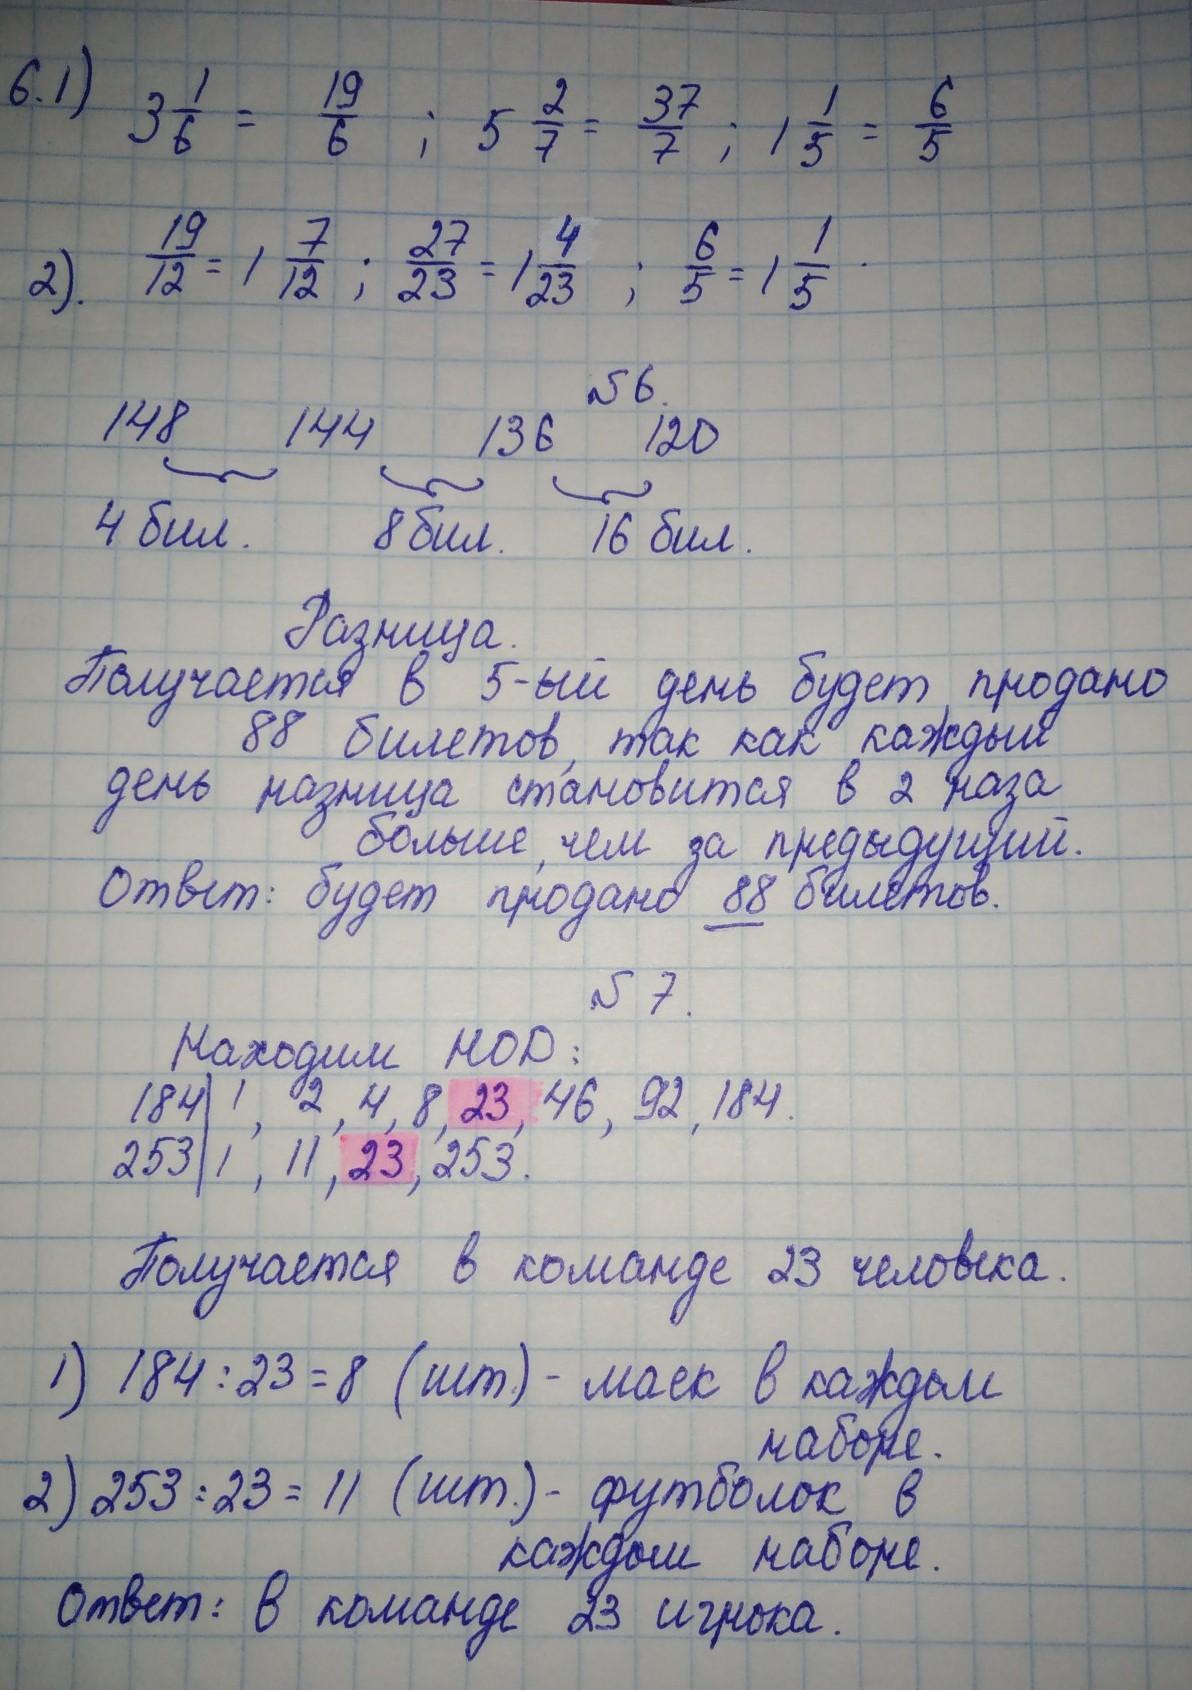 6.1) 3 1/6 = 19/6 ; 5 2/7 = 37/7 ; 1 1/5 = 6/5
2). 19/12 = 1 7/12 ; 27/23 = 1 4/23 ; 6/5 = 1 1/5 .
№6.
148 144 136 120
4 бил. 8 бил. 16 бил.
Разница.
Получается в 5-ый день будет продано
88 билетов, так как каждый
день разница становится в 2 раза
больше, чем за предыдущий.
Ответ: будет продано 88 билетов.
№7.
Находим НОД:
184| 1, 2, 4, 8, 23, 46, 92, 184.
253| 1, 11, 23, 253.
Получается в команде 23 человека.
1) 184 : 23 = 8 (шт.) - маек в каждом
наборе.
2) 253 : 23 = 11 (шт.) - футболок в
каждом наборе.
Ответ: в команде 23 игрока.